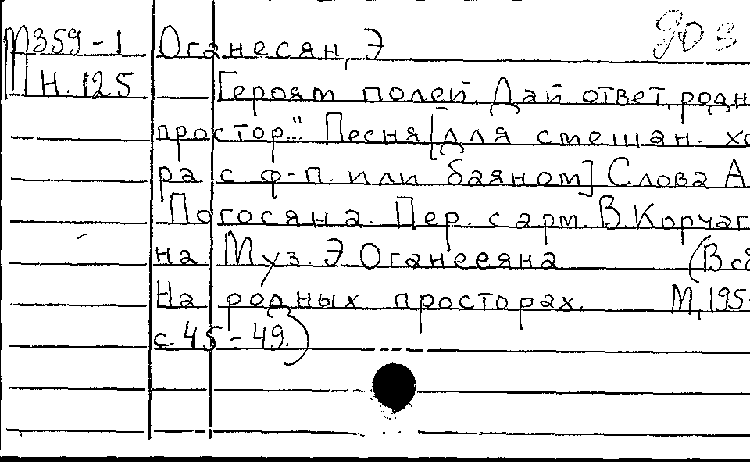 М359-1 Оганесян, Э
Н.125 Героям полей. Дай ответ, родн
простор..." Песня [для смешан. хо
ра с ф-п. или баяном] Слова А
Погосяна. Пер. с арм. В. Корчаг
на Муз. Э Оганесяна (В сб
На родных просторах. М, 195
с. 45-49.)